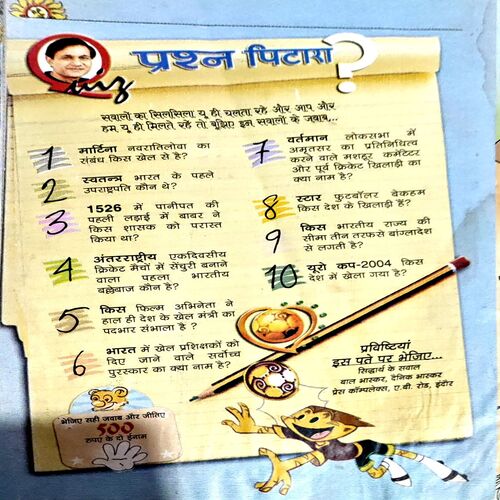 Quiz
प्रश्न पिटारा ?
सवालों का सिलसिला यू ही चलता रहे और आप और
हम यू ही मिलते रहे तो बूझिए इन सवालों के जवाब...
1 मार्टिना नवरातिलोवा का
संबंध किस खेल से है?
2 स्वतन्त्र भारत के पहले
उपराष्ट्रपति कौन थे?
3 1526 में पानीपत की
पहली लड़ाई में बाबर ने
किस शासक को परास्त
किया था?
4 अंतरराष्ट्रीय एकदिवसीय
क्रिकेट मैचों में सेंचुरी बनाने
वाला पहला भारतीय
बल्लेबाज कौन है?
5 किस फिल्म अभिनेता ने
हाल ही देश के खेल मंत्री का
पदभार संभाला है ?
6 भारत में खेल प्रशिक्षकों को
दिए जाने वाले सर्वोच्च
पुरस्कार का क्या नाम है?
7 वर्तमान लोकसभा में
अमृतसर का प्रतिनिधित्व
करने वाले मशहूर कमेंटेटर
और पूर्व क्रिकेट खिलाड़ी का
क्या नाम है?
8 स्टार फुटबॉलर बेकहम
किस देश के खिलाड़ी हैं?
9 किस भारतीय राज्य की
सीमा तीन तरफसे बांग्लादेश
से लगती है?
10 यूरो कप-2004 किस
देश में खेला गया है?
प्रविष्टियां
इस पते पर भेजिए...
सिद्धार्थ के सवाल
बाल भास्कर, दैनिक भास्कर
प्रेस कॉम्पलेक्स, ए.बी. रोड, इंदौर
भेजिए सही जवाब और जीतिए
500
रुपए के दो ईनाम